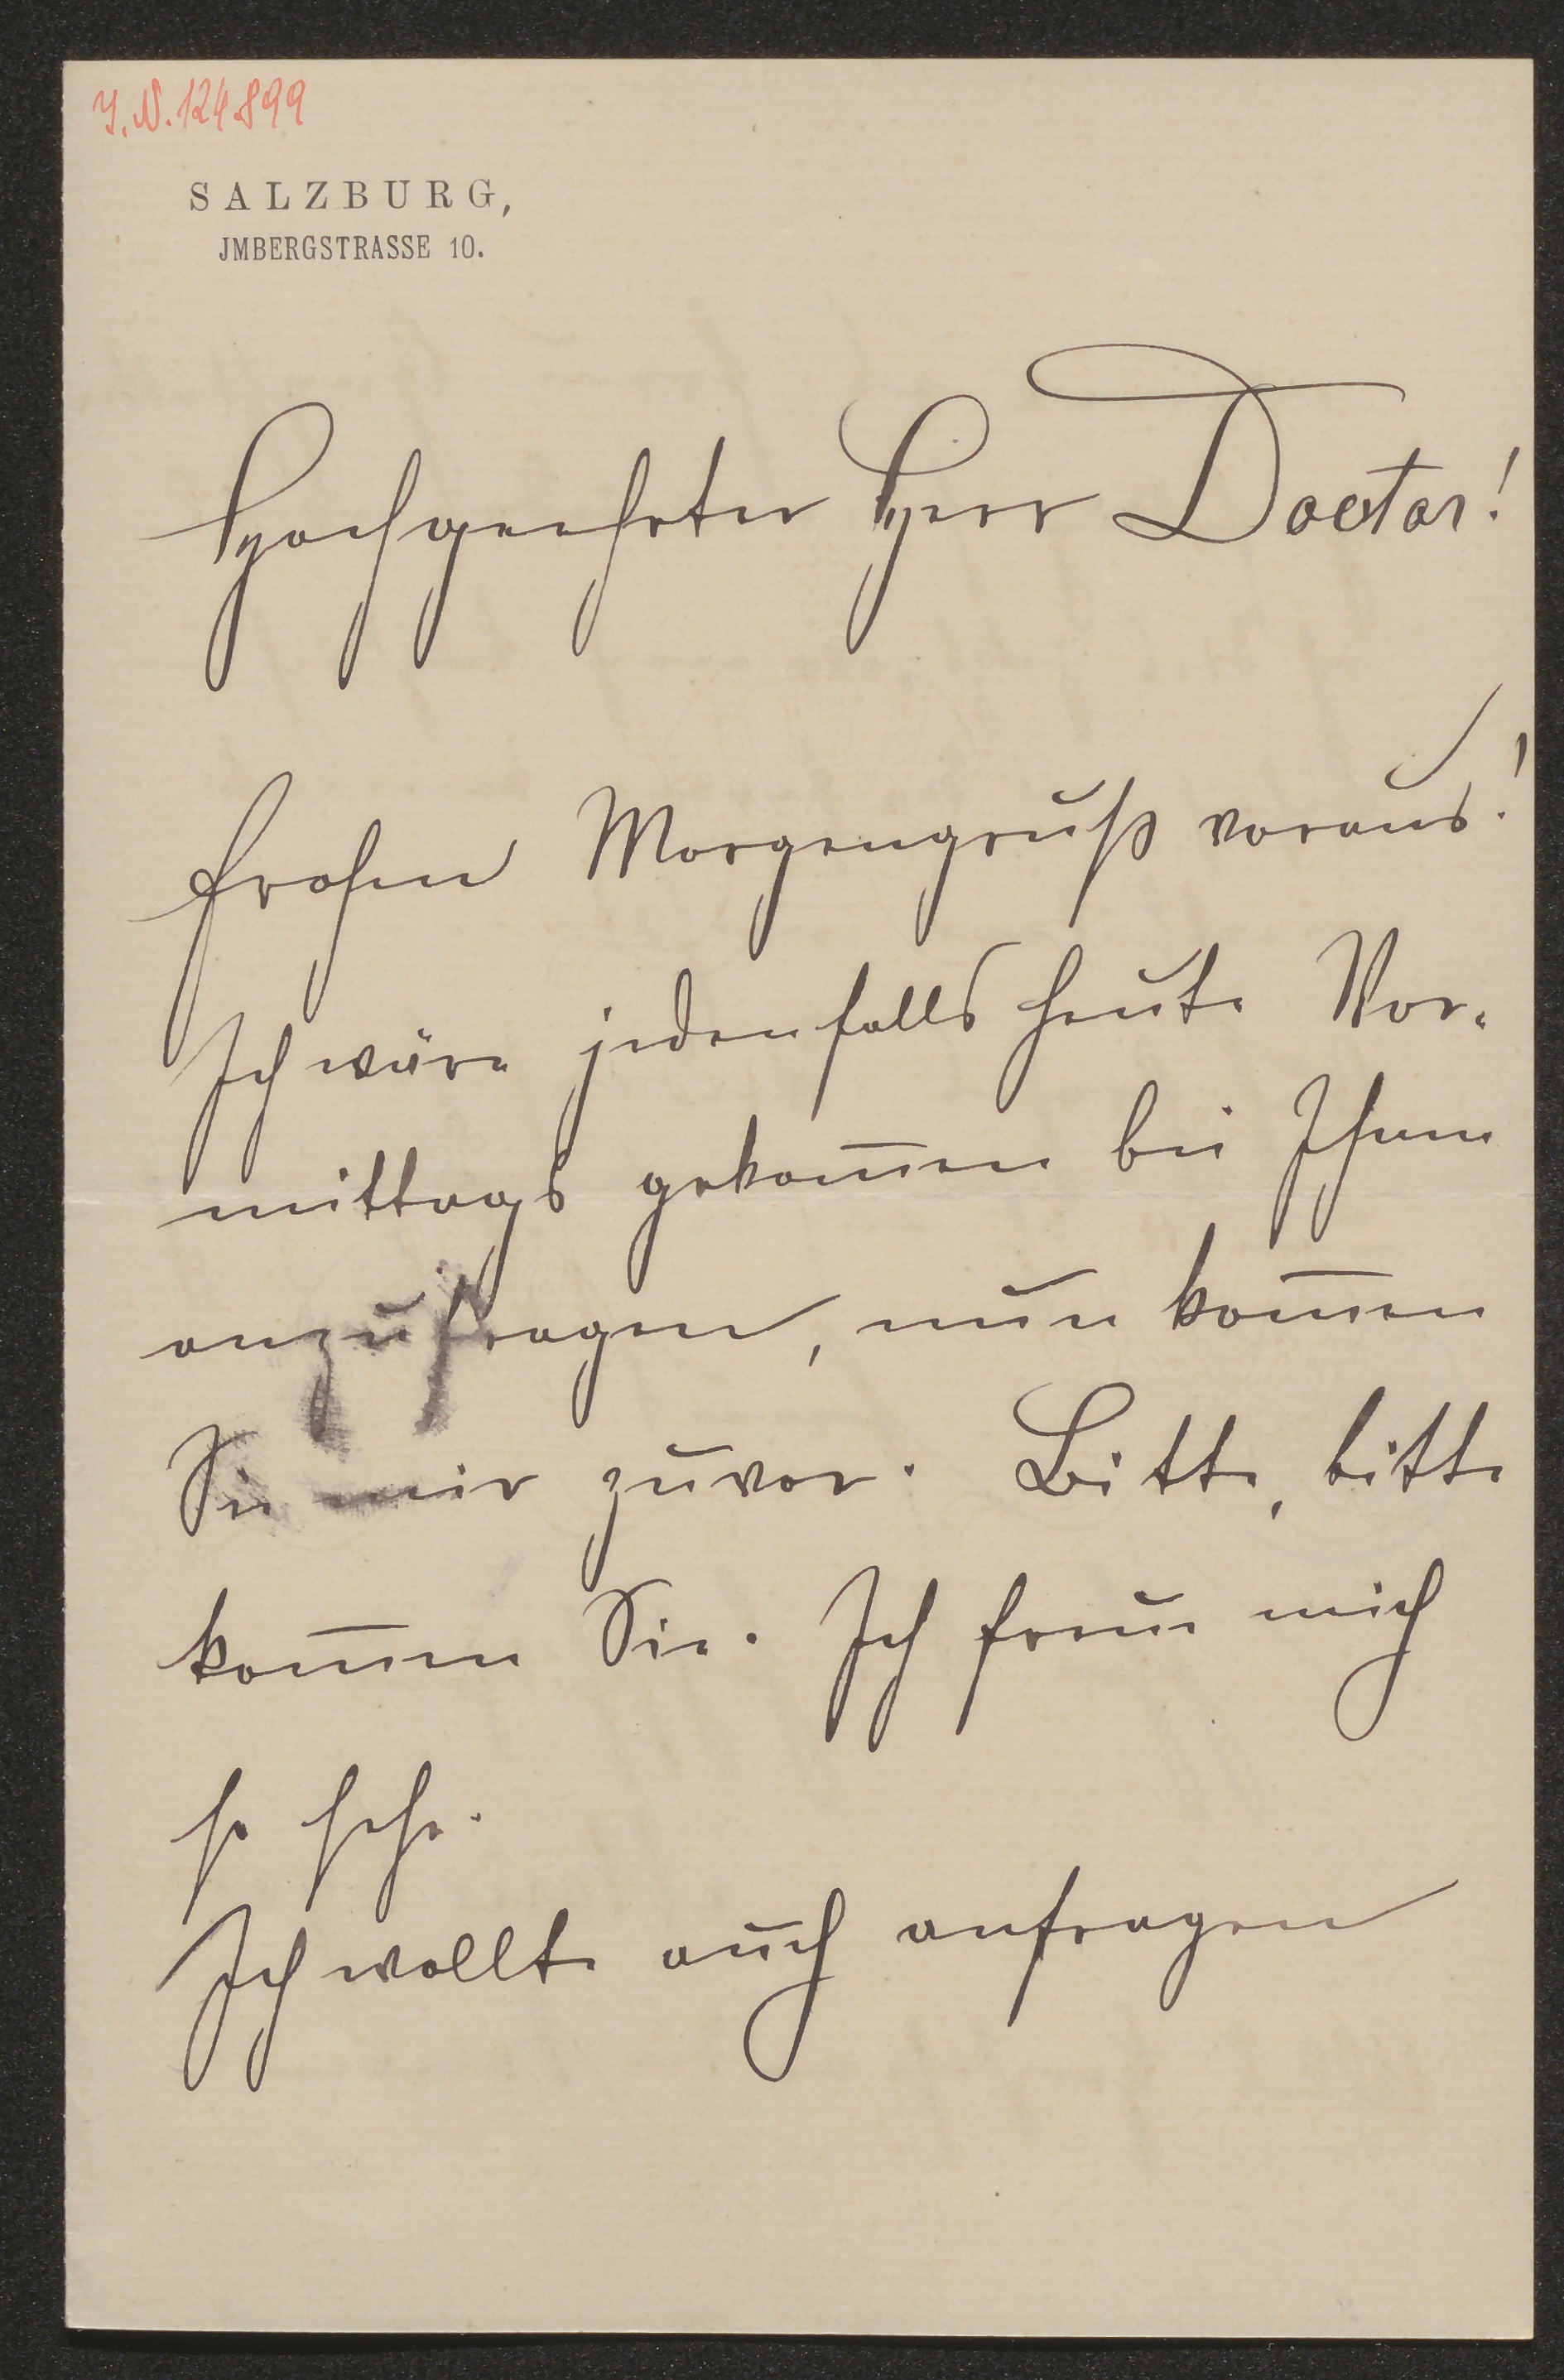 J.N. 124899
SALZBURG,
JMBERGSTRASSE 10.
Hochgeehrter Herr Doctor!
Frohen Morgengruß voraus!
Ich wäre jedenfalls heute Vor-
mittags gekom̄en bei Ihnen
anzufragen, nun kom̄en
Sie mir zuvor. Bitte, bitte
kom̄en Sie. Ich freue mich
so sehr.
Ich wollte auch anfragen